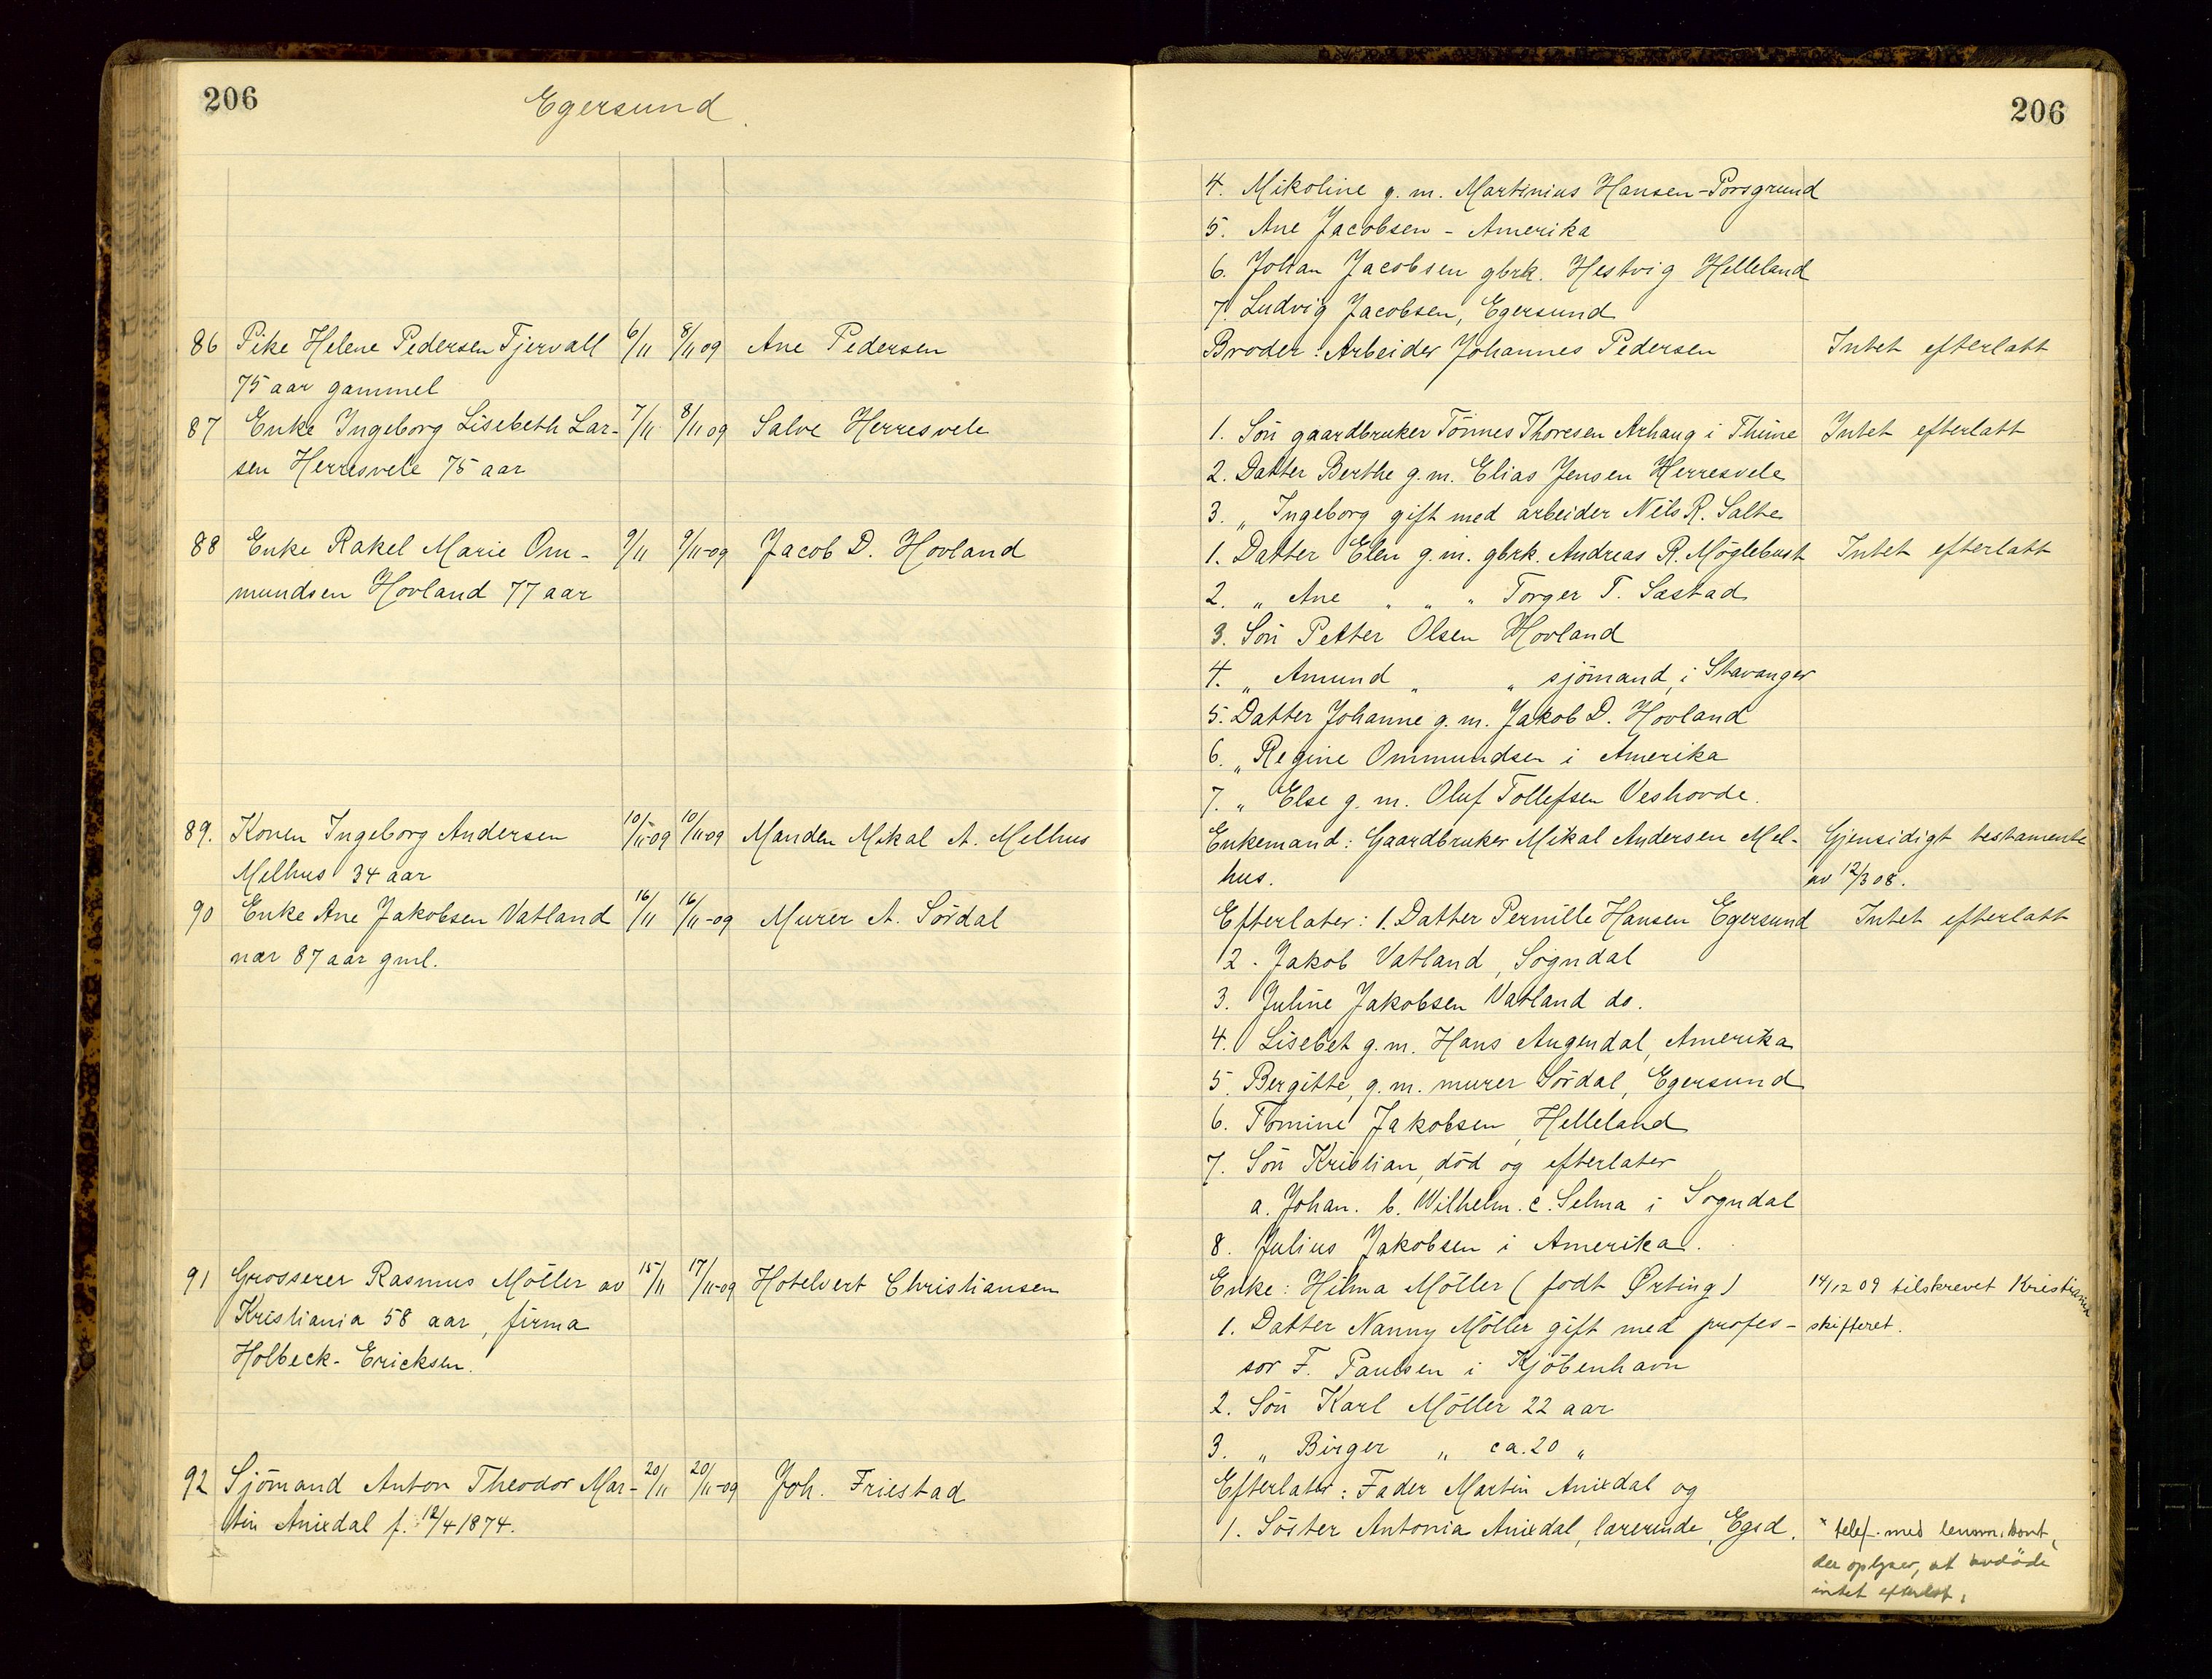 206
Egersund.
86 Pike Helene Pedersen Tjervall 6/11 8/11 09 Ane Pedersen
75 aar gammel
87 Enke Ingeborg Lisebeth Lar- 7/11 8/11 09 Salve Herresvele
sen Herresvele 75 aar
88 Enke Rakel Marie Om- 9/11 9/11-09 Jacob D. Hovland
mundsen Hovland 77 aar
89. Konen Ingeborg Andersen 10/11-09 10/11-09 Manden Mikal A. Melhus
Melhus 34 aar
90 Enke Ane Jakobsen Vatland 16/11 16/11-09 Murer A. Sördal
nær 87 aar gml.
91 Grosserer Rasmus Möller av 15/11 17/11-09 Hotelvert Christiansen
Kristiania 58 aar, firma
Holbeck-Ericksen.
92 Sjömand Anton Theodor Mar- 20/11 20/11-09 Joh. Friestad
tin Anixdal f. 12/4 1874.
206
4. Mikoline g. m. Martinius Hansen-Porsgrund
5. Ane Jacobsen - Amerika
6. Johan Jacobsen gbrk. Hestvig Helleland
7. Ludvig Jacobsen, Egersund
Broder: Arbeider Johannes Pedersen Intet efterlatt
1. Sön gaardbruker Tönnes Thoresen Arhaug i Thime Intet efterlatt
2. Datter Berthe g. m. Elias Jensen Herresvele
3. " Ingeborg gift med arbeider Nils R. Salte
1. Datter Elen g. m. gbrk. Andreas R. Möglebust Intet efterlatt
2. " Ane " " " Torger T. Sæstad
3. Sön Petter Olsen Hovland
4. " Amund " " sjömand, i Stavanger
5. Datter Johanne g. m. Jakob D. Hovland
6. " Regine Ommundsen i Amerika
7. " Else g. m. Oluf Tollefsen Veshovde.
Enkemand: Gaardbruker Mikal Andersen Mel- Gjensidigt testamente
hus. av 12/3 08.
Efterlater: 1. Datter Pernille Hansen Egersund Intet efterlatt
2. Jakob Vatland, Sogndal
3. Juline Jakobsen Vatland do.
4. Lisebet g. m. Hans Augendal, Amerika
5. Bergitte, g. m. murer Sördal, Egersund
6. Tomine Jakobsen, Helleland
7. Sön Kristian, död og efterlater
a. Johan. b. Wilhelm. c. Selma i Sogndal
8. Julius Jakobsen i Amerika.
Enke: Hilma Möller (født Ørting) 14/12 09 tilskrevet Kristiania
1. Datter Nanny Möller gift med profes- skifteret.
sor F. Paulsen i Kjöbenhavn
2. Sön Karl Möller 22 aar
3. " Birger " ca. 20 "
Efterlater: Fader Martin Anixdal og
1. Söster Antonia Anixdal, lærerinde, Egsd. telef. med lensm. kont.
der oplyser, at avdöde
intet efterlot.